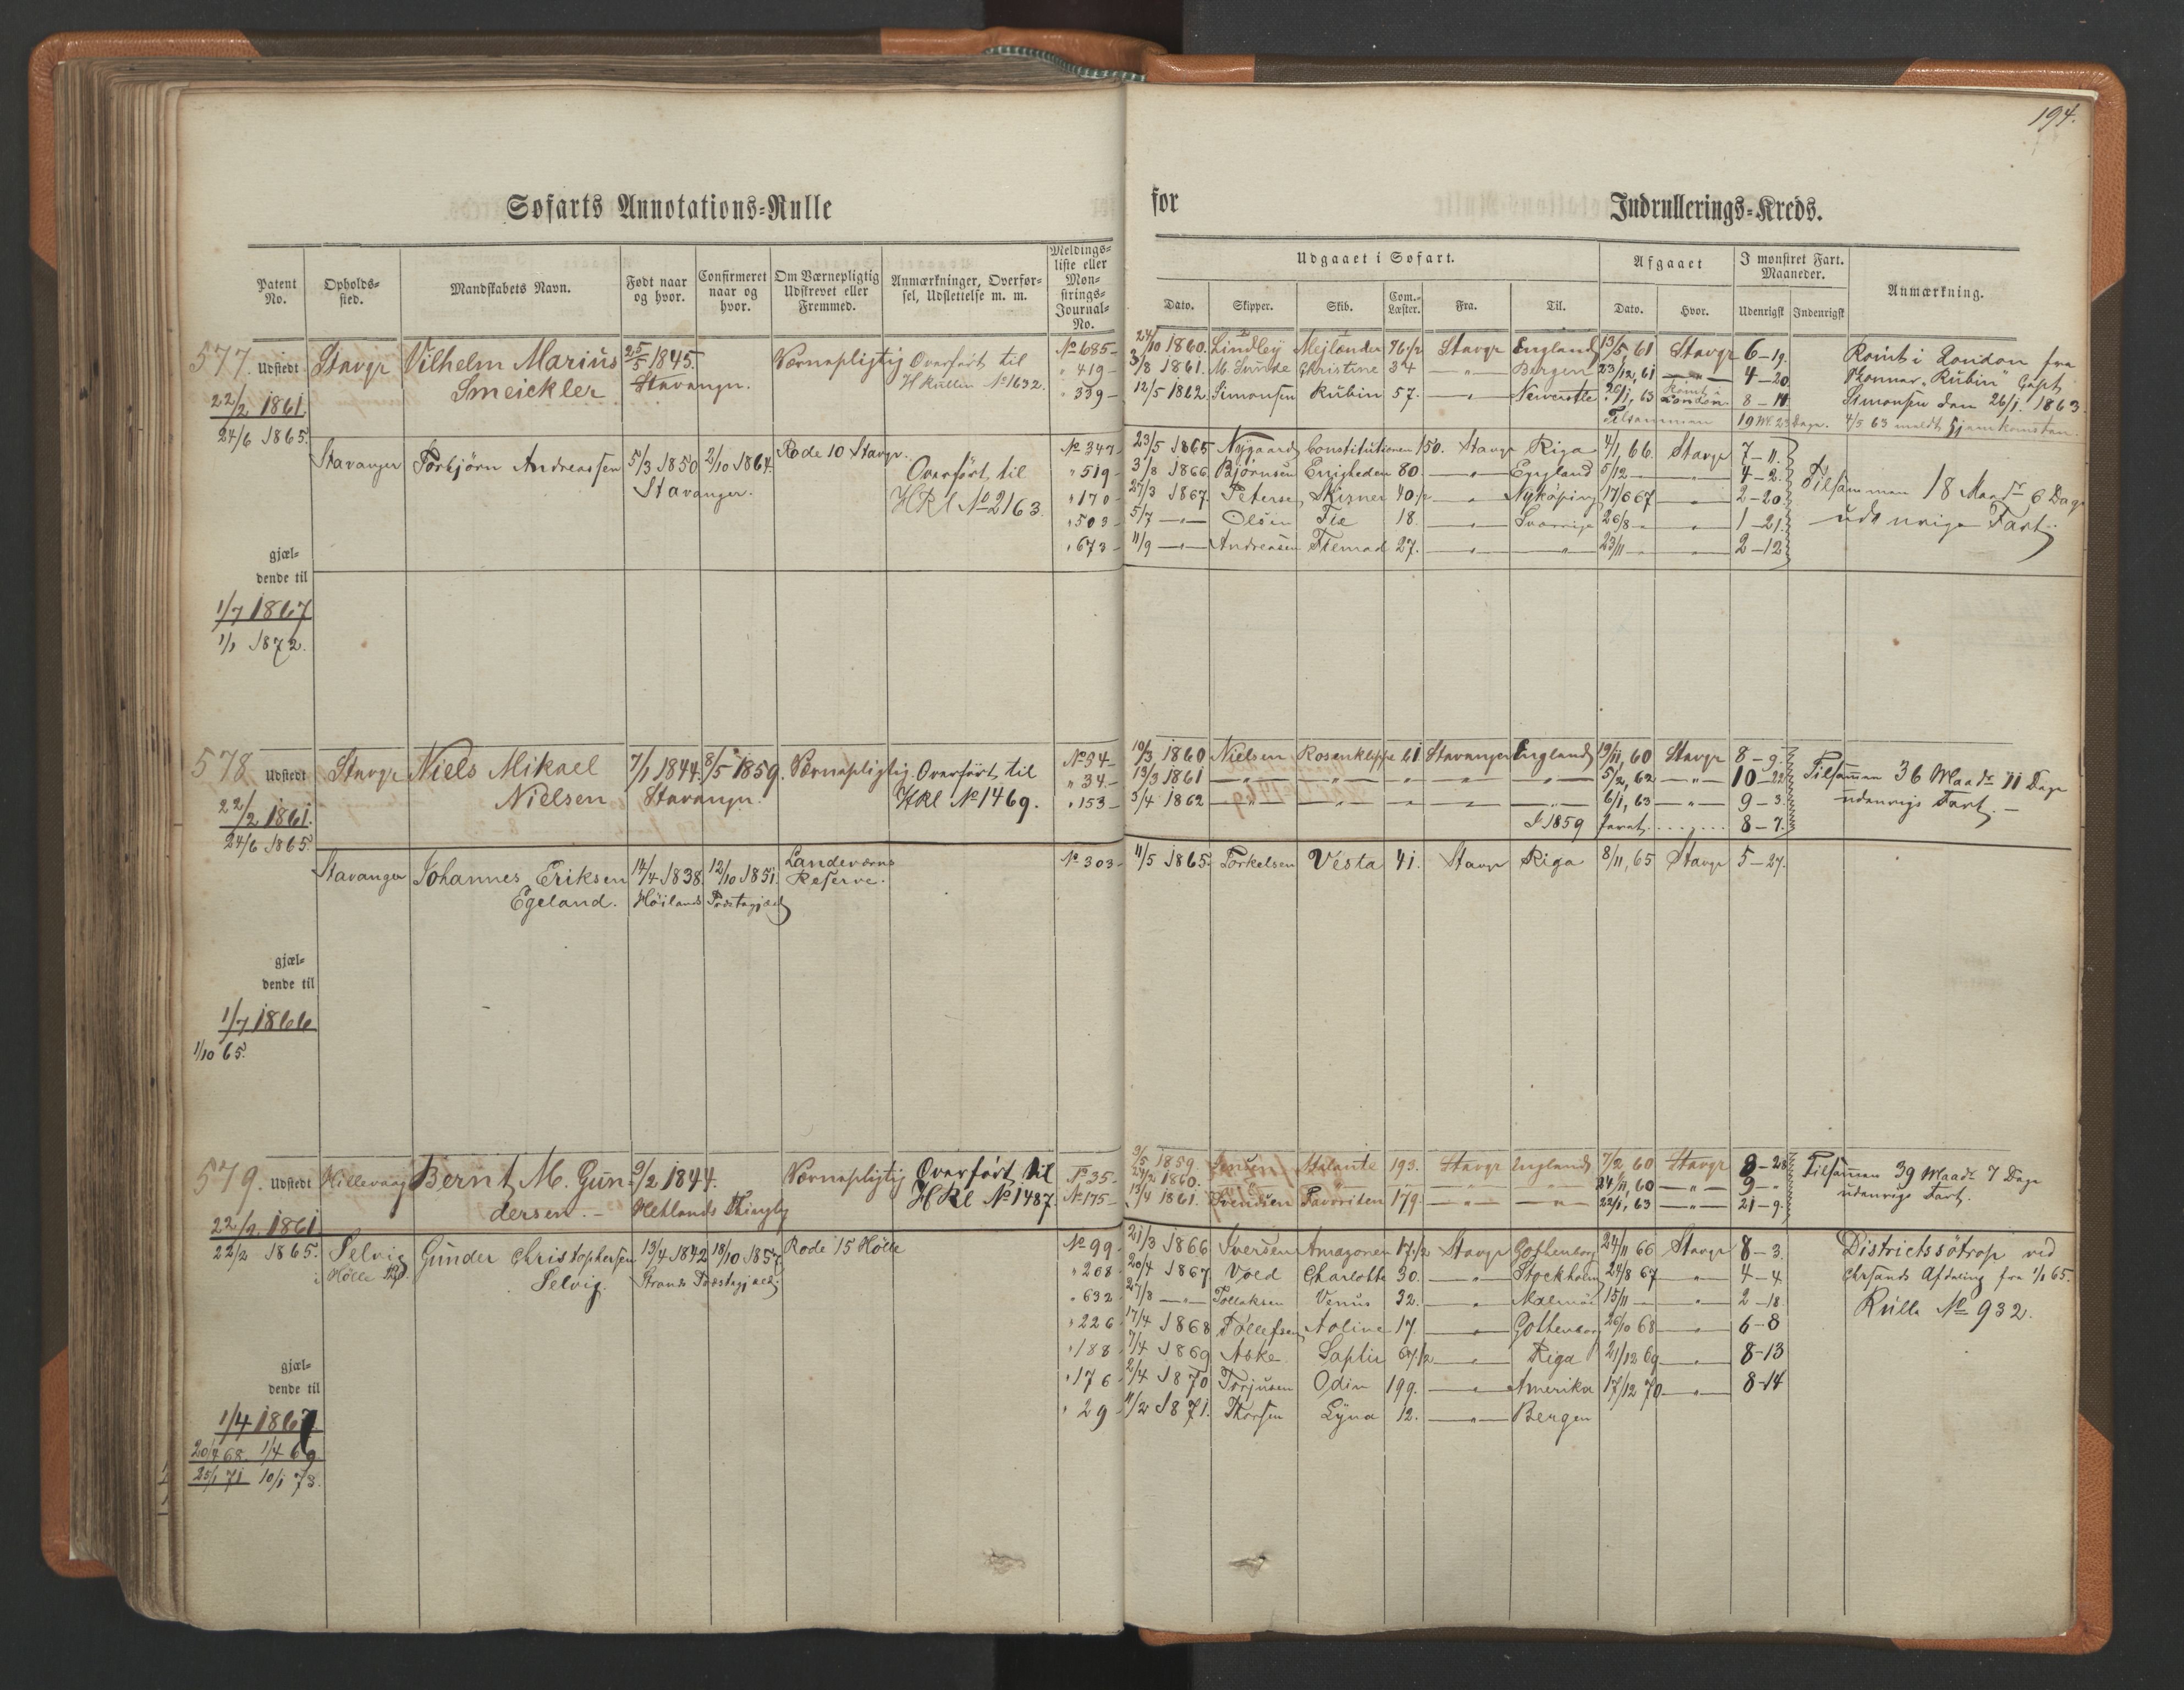 194.
Søfarts Annotations-Rulle for Indrullerings-Kreds.
Patent No. Opholds-sted. Mandskabets Navn. Født naar og hvor. Confirmeret naar og hvor. Om Værnepligtig Udskrevet eller Fremmed. Anmærkninger, Overførsel, Udslettelse m. m. Meldingsliste eller Mønstrings-Journal-No.
Udgaaet i Søfart. Afgaaet I mønstret Fart. Maaneder. Anmærkning.
Dato. Skipper. Skib. Com.-Læster. Fra. Til. Dato. Hvor. Udenrigsk Indenrigsk
577. Udstedt Stavgr Vilhelm Marius 25/5 1845. Værnepligtig Overført til No 685 24/10 1860. Lindley Mejlænder 76 1/2 Stavgr England 13/5, 61 Stavgr 6-19.
Smeickler Stavanger. HRullen No 1632. " 419 3/8 1861. Christine 34 Bergen 23/12, 61 4-20
22/2 1861. " 339 12/5 1862. Simonsen Rubin 57. Newcastle 26/1, 63 Rømt i London 8-14
Tilsammen 19 M. 23 Dage.
Rømt i London fra
"Rubin" Capt
Simonsen den 26/1 1863.
4/5 63 meldt Hjemkomsten.
24/6 1865.
Stavanger Torbjørn Andreassen 5/3 1850 2/10 1864. Rode 10 Stavgr. No 347 23/5 1865 Nygaard Constitutionen 150. Stavgr Riga 4/1, 66. Stavgr 7-11.
Stavanger. Overført til " 519 3/8 1866 Bjørnsen Enigheden 80 England 5/12 4-2.
HRl No 2163. " 170 27/3 1867. Petersen Skirner 40 1/2 Nykøping 17/6 67 2-20
" 503 5/7 Olsen 18. Sverrige 26/8 1-21.
" 673 11/9 Andreasen Fremad 27. 23/11 2-12
Tilsammen 18 Maadr 6 Dage
udenrigs Fart.
gjæl-
dende til
1/7 1867
1/1 1872.
578. Udstedt Stavgr Niels Mikael 7/1 1844. 8/5 1859. Værnepligtig. Overført til No 34 10/3 1860 Nielsen Rosenklippe 61 Stavanger England 19/11, 60 Stavgr 8-9.
Nielsen Stavanger. HRl No 1469. " 34 13/3 1861 5/2, 62 10-22
22/2 1861. " 153 3/4 1862 6/1, 63 9-3.
I 1859 faret 8-7.
Tilsammen 36 Maadr 11 Dage
udenrigs Fart.
24/6 1865.
Stavanger Johannes Eriksen 14/4 1838. 12/10 1851. Landeværns No 303 11/5 1865. Torkelsen Vesta 41. Stavgr Riga 8/11, 65 Stavgr 5-27.
Egeland. Høilands Præstegjæld Reserve.
gjæl-
dende til
1/7 1866
1/10 65.
579. Udstedt Hillevaag Bernt M. Gun- 9/2 1844. Værnepligtig Overført til No 35 9/5 1859. Jensen Atalante 193. Stavgr England 7/2 60 Stavgr 8-28
dersen. Hetlands Thinglag HRl No 1487. No 175 24/2 1860. 24/11, 60 9-"
22/2 1861 13/4 1861. Svendsen Favoriten 179. 22/1, 63 21-9.
Tilsammen 39 Maadr 7 Dage
udenrigs Fart.
22/2 1865. Selvig Gunder Christophersen 13/4 1842 18/10 1857. Rode 15 Hølle No 99 21/3 1866 Iversen Amazonen 17 1/2 Stavgr Gothenborg 24/11 66 Stavgr 8-3.
i Hølle Selvig. Strands Præstegjæld. " 268 20/4 1867 Voed Charlotte 30. Stockholm 24/8 67 4-4
" 632 27/8 Tollaksen Venus 32. Malmøe 15/11 2-18.
" 226 17/4 1868 Tollefsen Aoline 17. Gothenborg 26/10 68 6-8
" 188 7/4 1869 Aske 67 1/2 Riga 21/12 69 8-13
" 176 2/4 1870 Torjusen Odin 199. Amerika 17/12 70 8-14
" 29 11/2 1871. Thorsen Lyna 12. Bergen
Districtssøtrop ved
Chrsands Afdeling fra 1/1 65.
Rulle No 932.
gjæl-
dende til
1/4 1867
20/4 68. 1/4 69
25/1 71 10/1 73.